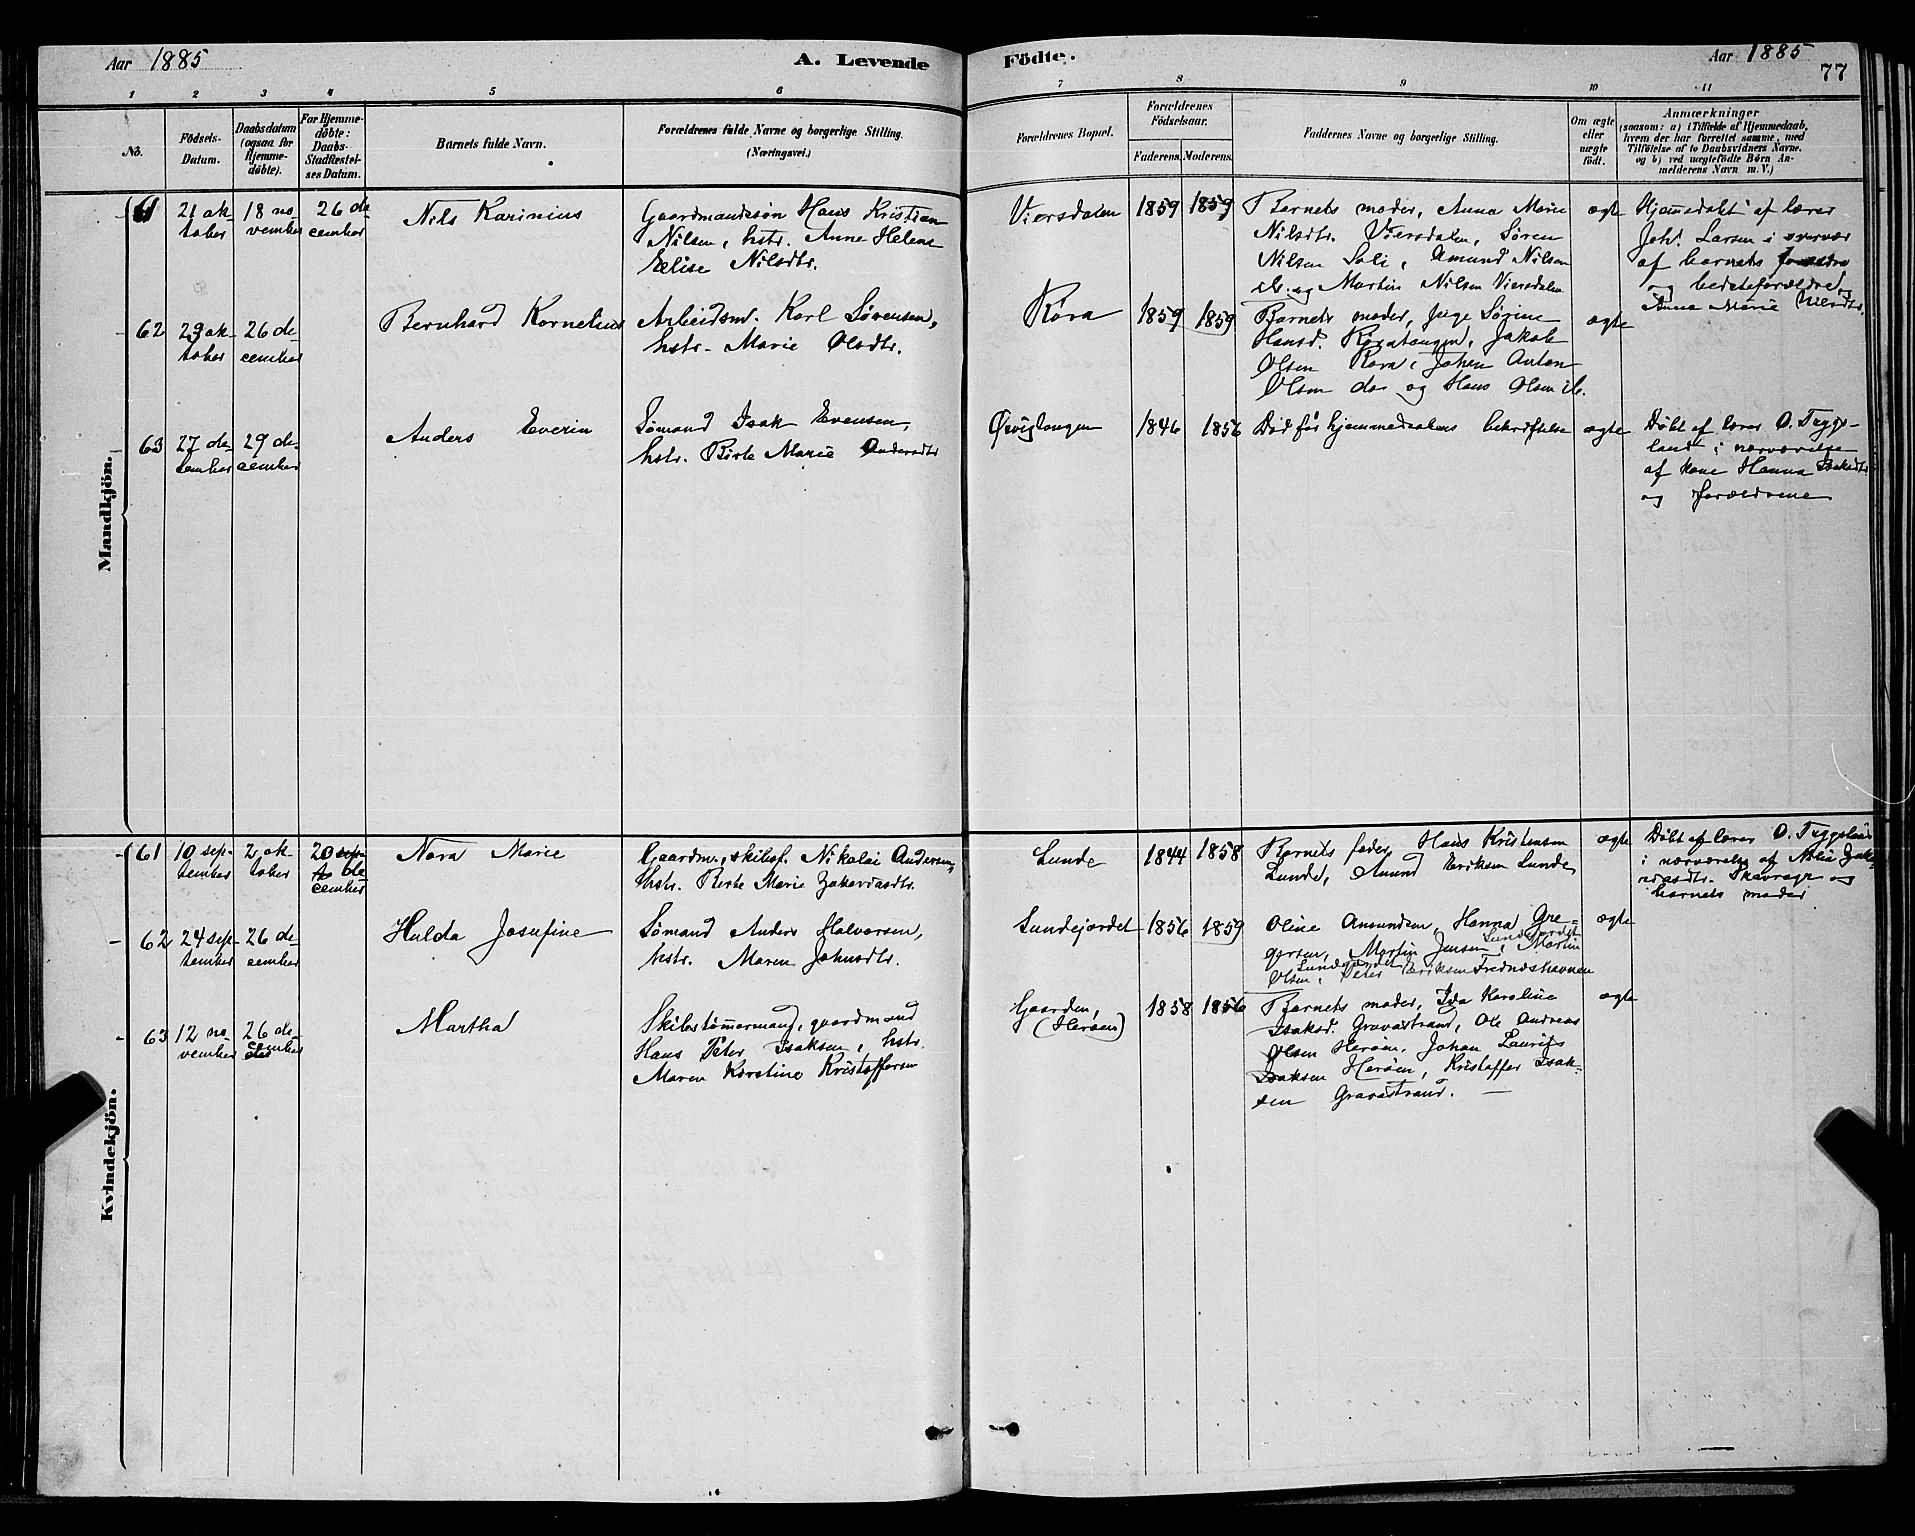 Aar 1885
A. Levende
Födte.
Aar 1885
77
1 2 3 4 5 6 7 8 9 10 11
No.
Födsels-
Datum.
Daabsdatum
(ogsaa for
Hjemme-
døbte).
For Hjemme-
døbte:
Daabs-
Stadfæstel-
ses Datum.
Barnets fulde Navn.
Forældrenes fulde Navne og borgerlige Stilling.
(Næringsvei.)
Forældrenes Bopæl.
Forældrenes
Födselsaar.
Faderens. Moderens.
Faddernes Navne og borgerlige Stilling.
Om ægte
eller
uægte
födt.
Anmærkninger
(saasom: a) i Tilfælde af Hjemmedaab,
hvem der har forrettet samme, med
Tilföielse af to Daabsvidners Navne.
og b) ved uægtefödte Börn An-
melderens Navn m. V.)
Mandkjön.
61
21 ok-
tober
18 no-
vember
26 de-
cember
Nils Karinius
Gaardmandssøn Hans Kristian
Nilsen, hstr. Anne Helene
Elise Nilsdtr.
Viersdalen
1859
1859
Barnets moder, Anna Marie
Nilsdtr. Viersdalen, Søren
Nilsen Soli, Amund Nilsen
ib. og Martin Nilsen Viersdalen
ægte
Hjemmedøbt af lærer
Joh. Larsen i
af barnets
og bedsteforældre, og
Anna Marie Nilsdtr.
62
29 ok-
tober
26 de-
cember
Bernhard Kornelius
Arbeidsm. Karl Sørensen,
hstr. Marie Olsdtr.
Røra
1859
1859
Barnets moder, pige Sørine
Hansd. Røratangen, Jakob
Olsen Røra, Johan Anton
Olsen do og Hans Olsen ib.
ægte
63
27 de-
cember
29 de-
cember
Anders Everin
Sømand Isak Evensen,
hstr. Birte Marie Andersdtr
Ørvigtangen
1846
1856
Død før hjemmedaabens bekræftelse
ægte
Døbt af lærer O. Tegge-
land i nærværelse
af kone Hanna Isaksdtr
og forældrene
Kvindekjön.
61
10 sep-
tember
2 ok-
tober
20 sep-
de-
cember
Nora Marie
Gaardm., skibsf. Nikolai Andersen,
hstr. Berte Marie Zakariasdtr.
Lunde
1844
1858
Barnets fader, Hans Kristensen
Lunde, Amund Eriksen Lunde
ægte
Døbt af lærer O. Teggeland
i nærværelse af
og
barnets moder
62
24 sep-
tember
26 de-
cember
Hulda Josefine
Sømand Anders Halvorsen,
hstr. Maren Johnsdtr.
Lundejordet
1856
1859
Oline Amundsen, Hanna Gre-
Lundejordet
gersen, Martin Jensen, Martin
Lundejordet
Olsen, Peter Eriksen Fredrikshavnen
ægte
63
12 no-
vember
26 de-
cember
Martha
Skibstømmermand, gaardmand
Hans Peter Isaksen, hstr.
Maren Kirstine Kristoffersen
Gaarden,
(Herøen)
1858
1856
Barnets moder, Ida Karoline
Isaksd. Gravastrand, Ole Andreas
Olsen Herøen, Johan Laurits
Isaksen Herøen, Kristoffer Isak-
sen Gravastrand.
ægte